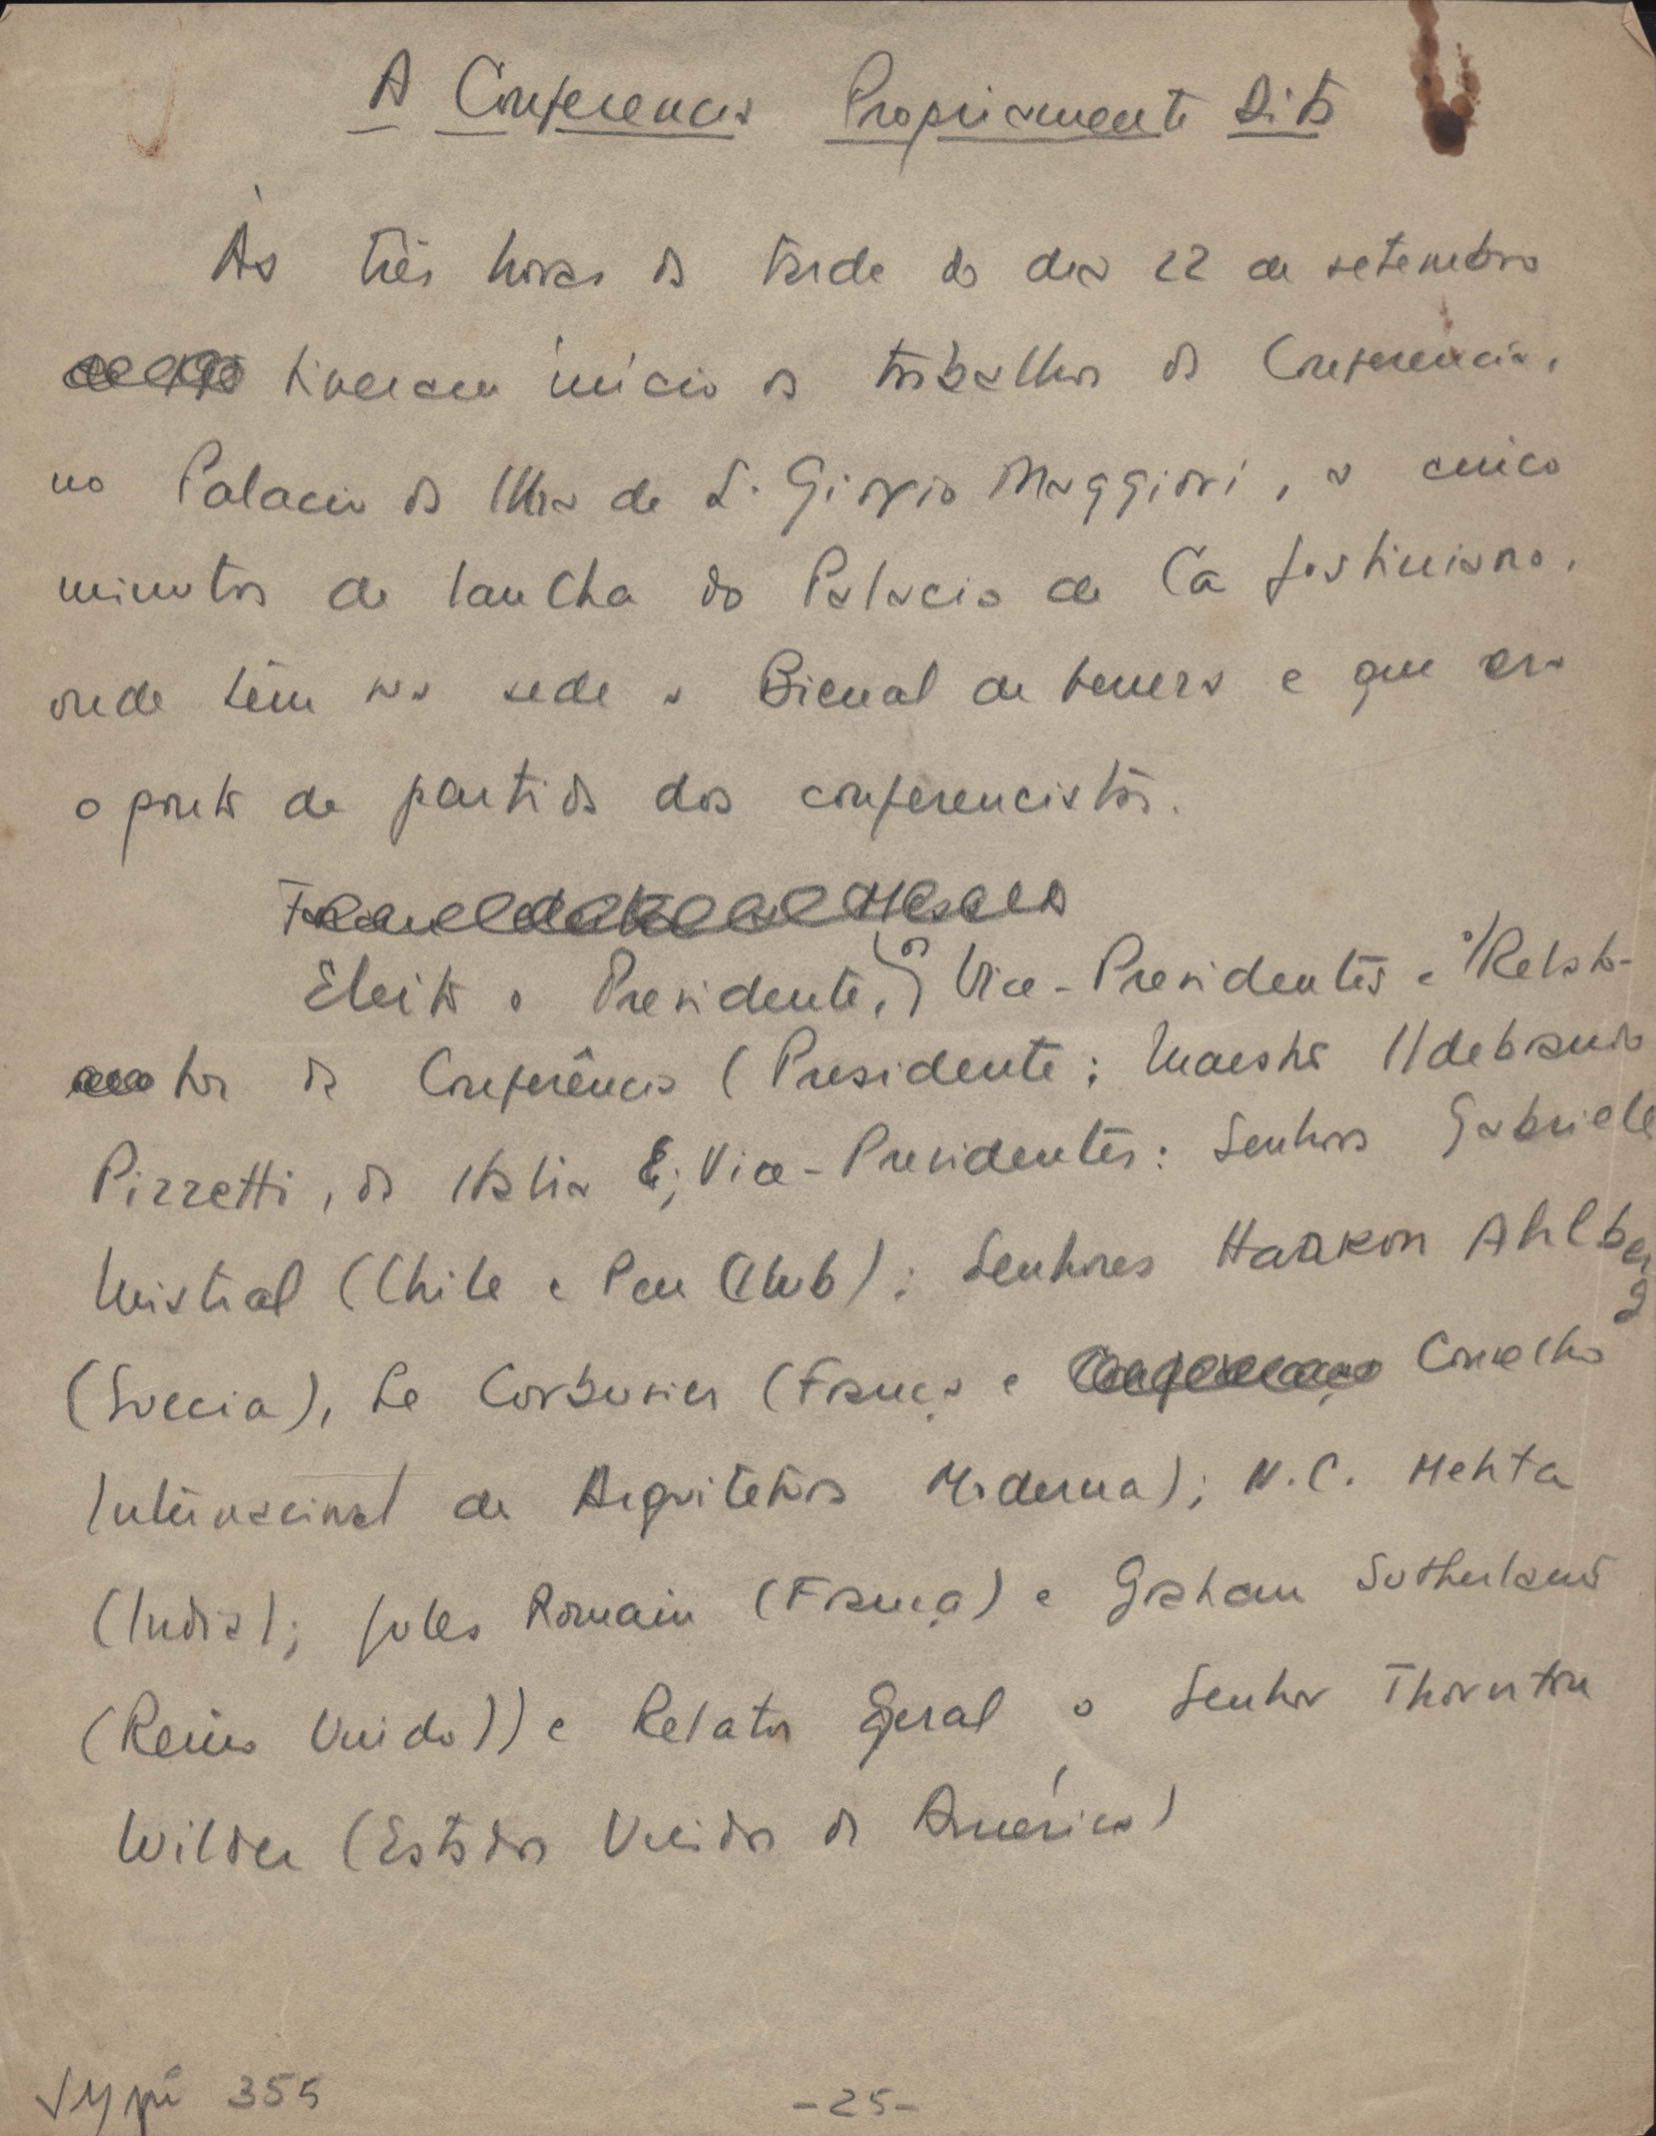 A Conferencia Propriamente Dita
Às três horas da tarde do dia 22 de setembro
tiveram início os trabalhos da Conferencia,
no Palacio da Ilha de S. Giorgio Maggiori, a cinco
minutos de lancha do Palacio de Cã Justiniano,
onde têm sua sede a Bienal de Veneza e que era
o ponto de partida dos conferencistas.
Eleito o Presidente, os Vice-Presidentes e o Relato-
tor da Conferência (Presidente: Maestro Ildebrando
Pizzetti, da Italia; Vice-Presidentes: Senhora Gabriele
Mistral (Chile e Pen Club); Senhores Haakon Ahlberg
(Suecia), Le Corbusier (França e Conselho
Internacional de Arquitetura Moderna); N.C. Mehta
(India); Jules Romain (França) e Graham Sutherland
(Reino Unido)) e Relator Geral o Senhor Thornton
Wilder (Estados Unidos da América)
355 -25-